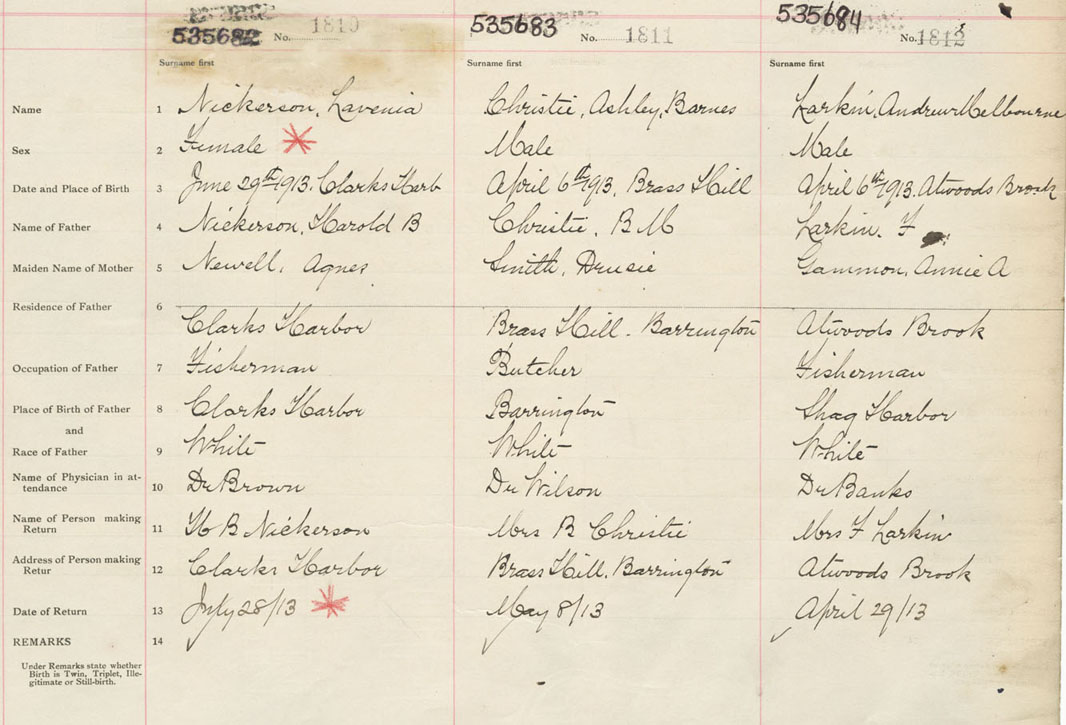 535682 No. 1810 535683 No. 1811 535684 No. 1812
Surname first Surname first Surname first
Name 1 Nickerson, Lavenia Christie, Ashley, Barnes Larkin, Andrew Melbourne
Sex 2 Female Male Male
Date and Place of Birth 3 June 29th 1913. Clarks Harb April 6th 1913. Brass Hill April 6th 1913. Atwoods Brook
Name of Father 4 Nickerson, Harold B Christie, B M Larkin. F
Maiden Name of Mother 5 Newell, Agnes Smith, Drusie Gammon, Annie A
Residence of Father 6
Clarks Harbor Brass Hill - Barrington Atwoods Brook
Occupation of Father 7 Fisherman Butcher Fisherman
Place of Birth of Father 8 Clarks Harbor Barrington Shag Harbor
and
Race of Father 9 White White White
Name of Physician in at-
tendance 10 Dr Brown Dr Wilson Dr Banks
Name of Person making
Return 11 H B Nickerson Mrs B Christie Mrs F Larkin
Address of Person making
Retur 12 Clarks Harbor Brass Hill, Barrington Atwoods Brook
Date of Return 13 July 28/13 May 8/13 April 29/13
REMARKS 14
Under Remarks state whether
Birth is Twin, Triplet, Ille-
gitimate or Still-birth.